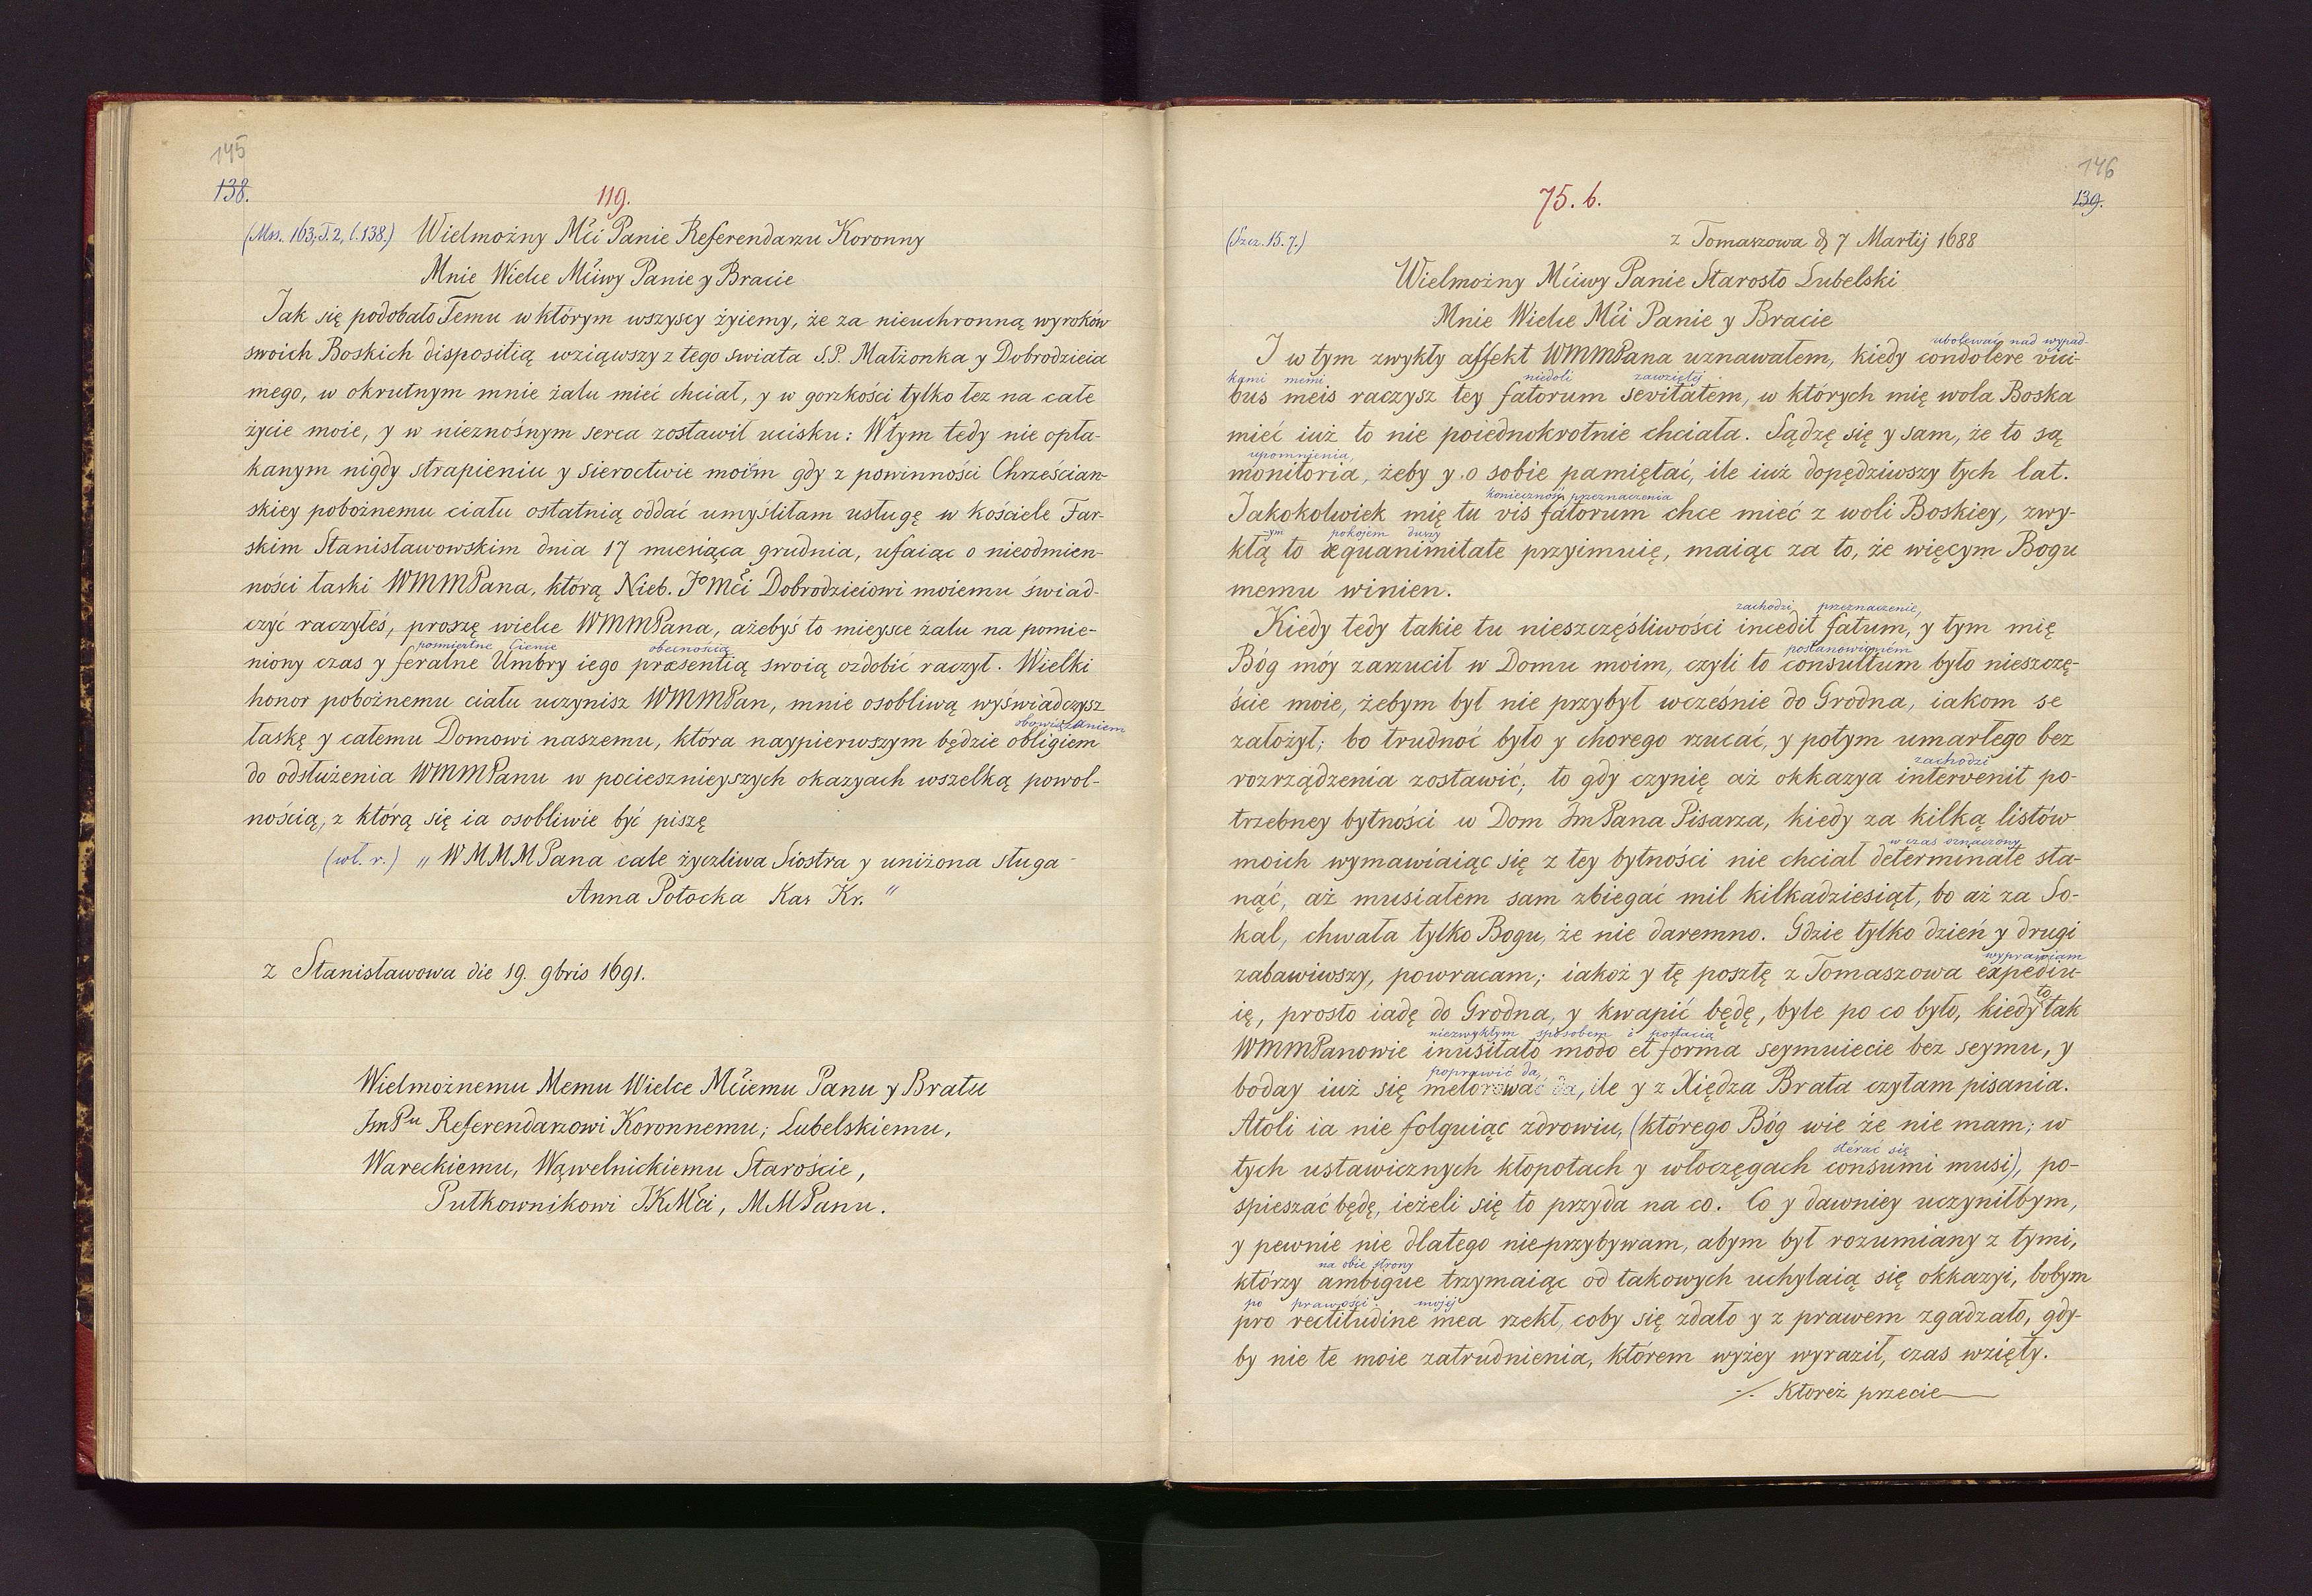 145
138.
119.
(Mss. 163, T.2, l.138.) Wielmożny Mci Panie Referendarzu Koronny
Mnie Wielce Mciwy Panie y Bracie
Jak się podobało Temu w którym wszyscy żyiemy, że za nieuchronną wyroków
swoich Boskich dispositią wziąwszy z tego swiata S.P. Małżonka y Dobrodzieia
mego, w okrutnym mnie żalu mieć chciał, y w gorzkości tylko łez na całe
życie moie, y w nieznośnym serca zostawił ucisku: W tym tedy nie opła-
kanym nigdy strapieniu y sieroctwie moim gdy z powinności Chrześcian-
skiey pobożnemu ciału ostatnią oddać umyśliłam usługę w kościele Far-
skim Stanisławowskim dnia 17 miesiąca grudnia, ufaiąc o nieodmien-
ności łaski WMMPana, którą Nieb. Jo Mci Dobrodzieiowi moiemu świad-
czyć raczyłéś, proszę wielce WMMPana, ażebyś to mieysce żalu na pomie-
pośmiertne Cienie obecnością
niony czas y feralne Umbry iego præsentią swoią ozdobić raczył. Wielki
honor pobożnemu ciału uczynisz WMMPan, mnie osobliwą wyświadczysz
obowiązaniem
łaskę y całemu Domowi naszemu, która naypierwszym będzie obligiem
do odsłużenia WMMPanu w pociesznieyszych okazyach wszelką powol-
nością, z którą się ia osobliwie być piszę
(wł. r.) „WMMMPana cale życzliwa Siostra y uniżona sługa
Anna Potocka Kaz Kr."
z Stanisławowa die 19. 9bris 1691.
Wielmożnemu Memu Wielce Mciemu Panu y Bratu
JmPu Referendarzowi Koronnemu; Lubelskiemu,
Wareckiemu, Wąwelnickiemu Staroście,
Pułkownikowi JKMci, MMPanu.
146
139.
75. b.
(Szcz. 15. 7.) z Tomaszowa d 7 Martij 1688
Wielmożny Mciwy Panie Starosto Lubelski
Mnie Wielce Mci Panie y Bracie
ubolewać nad wypad-
I w tym zwykły affekt WMMPana uznawałem, kiedy condolere vici-
kami memi niedoli zawziętej
bus meis raczysz tey fatorum sevitatem, w których mię wola Boska
mieć iuż to nie poiednokrotnie chciała. Sądzę się y sam, że to są
upomnienia,
monitoria, żeby y o sobie pamiętać, ile iuż dopędziwszy tych lat.
konieczność przeznaczenia
Jakokolwiek mię tu vis fatorum chce mieć z woli Boskiey, zwy-
-ym pokojem duszy
kłą to æquanimitate przyimuię, maiąc za to, że więcym Bogu
memu winien.
zachodzi przeznaczenie,
Kiedy tedy takie tu nieszczęśliwości incedit fatum, y tym mię
postanowieniem
Bóg móy zarzucił w Domu moim, czyli to consultum było nieszczę-
ście moie, żebym był nie przybył wcześnie do Grodna, iakom se
założył; bo trudnoć było y chorego rzucać, y potym umarłego bez
zachodzi
rozrządzenia zostawić; to gdy czynię aż okkazya intervenit po-
trzebney bytności w Dom JmPana Pisarza, kiedy za kilką listów
w czas oznaczony
moich wymawiaiąc się z tey bytności nie chciał determinate sta-
nąć, aż musiałem sam zbiegać mil kilkadziesiąt, bo aż za So-
kal, chwała tylko Bogu, że nie daremno. Gdzie tylko dzień y drugi
wyprawiam
zabawiwszy, powracam; iakoż y tę posztę z Tomaszowa expediu-
ię, prosto iadę do Grodna, y kwapić będę, byle po co było, kiedy to tak
niezwykłym sposobem i postacią
WMMPanowie inusitato modo et forma seymuiecie bez seymu, y
poprawić da,
boday iuż się melorować da, ile y z Xiędza Brata czytam pisania.
Atoli ia nie folguiąc zdrowiu, (którego Bóg wie że nie mam; w
stérać się
tych ustawicznych kłopotach y włoczęgach consumi musi), po-
spieszać będę, ieżeli się to przyda na co. Co y dawniey uczyniłbym,
y pewnie nie dlatego nieprzybywam, abym był rozumiany z tymi,
na obie strony
którzy ambigue trzymaiąc od takowych uchylaią się okkazyi, bobym
po prawości mojej
pro rectitudine mea rzekł, coby się zdało y z prawem zgadzało, gdy-
by nie te moie zatrudnienia, którem wyżey wyraził, czas wzięły.
./. Któreż przecie